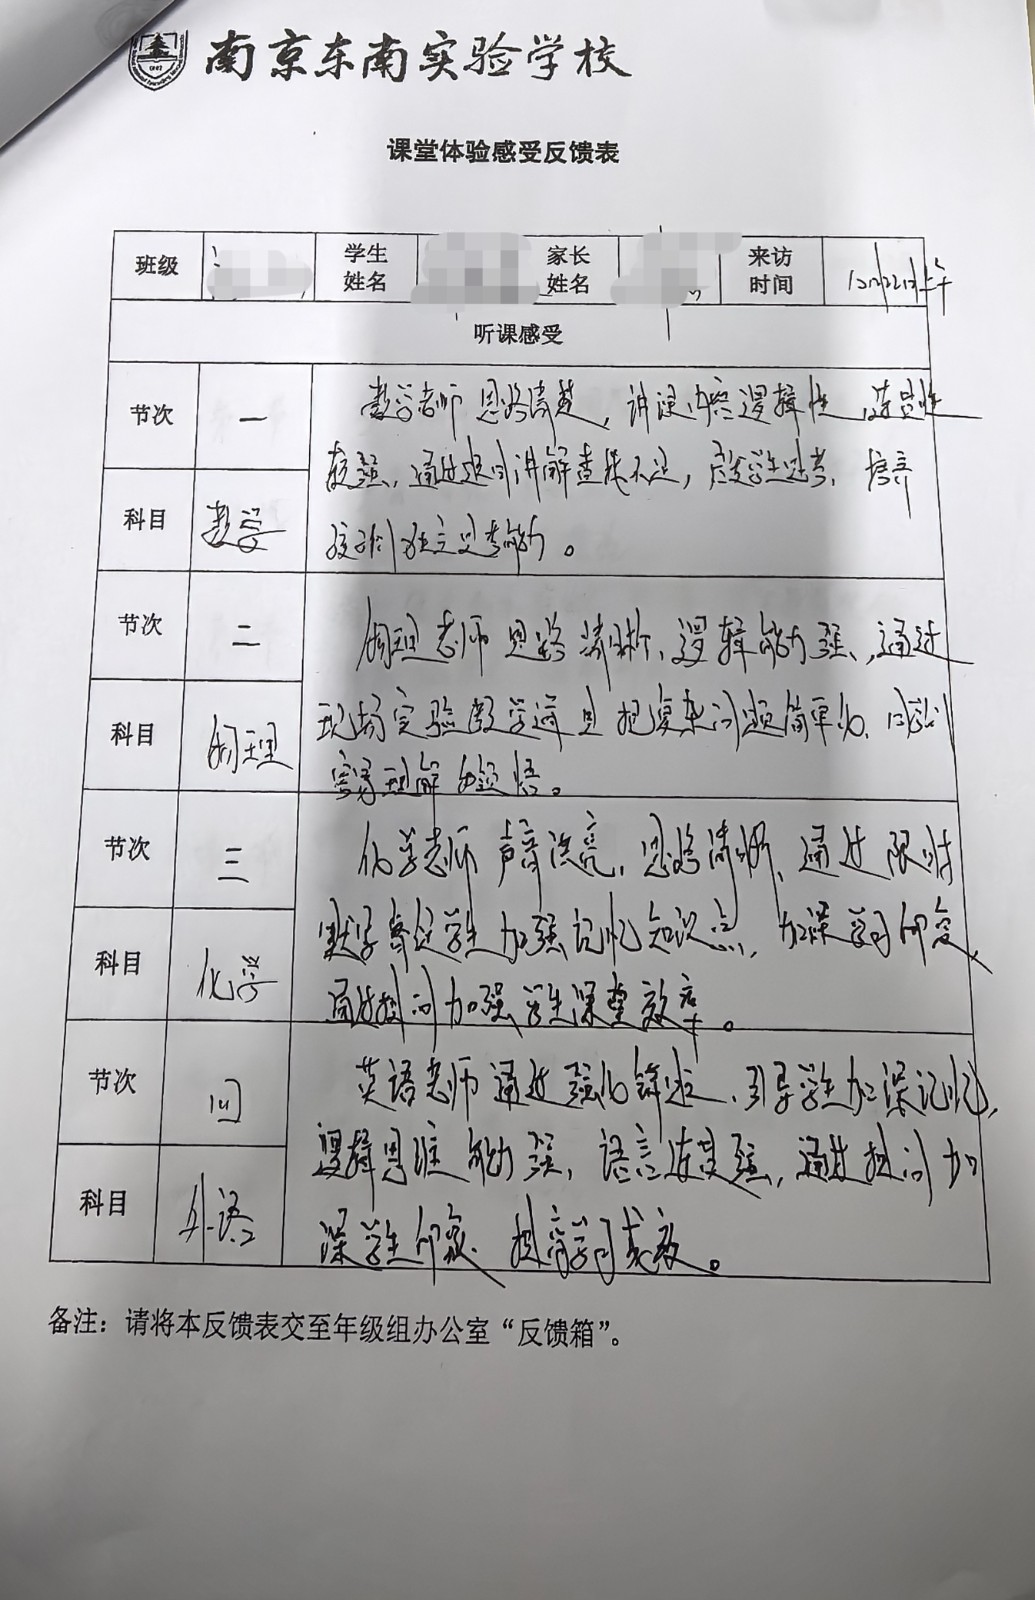 南京东南实验学校
课堂体验感受反馈表
班级 学生姓名 家长姓名 来访时间 12月22日上午
听课感受
节次 一
数学老师思路清楚，讲课内容逻辑性、连贯性
较强、通过提问讲解查找不足，启发学生思考、培养
科目 数学
孩子们独立思考能力。
节次 二
物理老师思路清晰、逻辑能力强、通过
科目 物理
现场实验教学逐且把复杂问题简单化、同学们
容易理解和领悟。
节次 三
化学老师声音洪亮、思路清晰、通过限时
默写督促学生加强记忆知识点、加深学习印象、
科目 化学
通过提问加强学生课堂效率。
节次 四
英语老师通过强化锻炼、引导学生加深记忆，
逻辑思维能力强，语言连贯强，通过提问加
科目 外语
深学生印象、提高学习成效。
备注：请将本反馈表交至年级组办公室“反馈箱”。